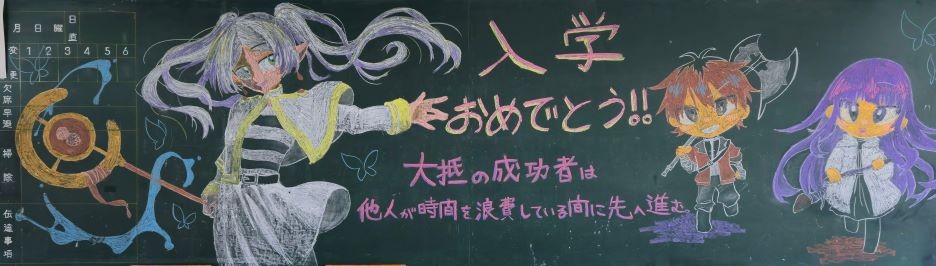 月日曜
日直
変更
1 2 3 4 5 6
欠席早退
掃除
伝達事項
入学
おめでとう!!
大抵の成功者は
他人が時間を浪費している間に先へ進む